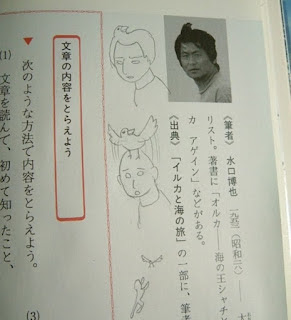 〈筆者〉 水口博也 一九五三(昭和二八)―― 大
リスト。著書に「オルカ――海の王シャチ
カ アゲイン」などがある。
〈出典〉「イルカと海の旅」の一部に、筆者
文章の内容をとらえよう
▼ 次のような方法で内容をとらえよう。
(1) 文章を読んで、初めて知ったこと、
(3)